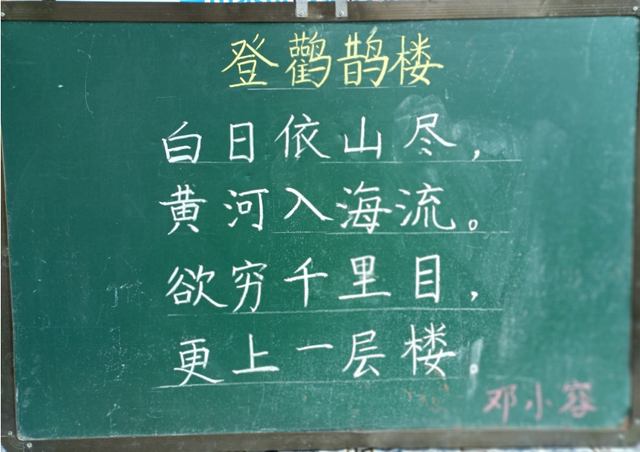 登鹳鹊楼
白日依山尽，
黄河入海流。
欲穷千里目，
更上一层楼。
邓小容